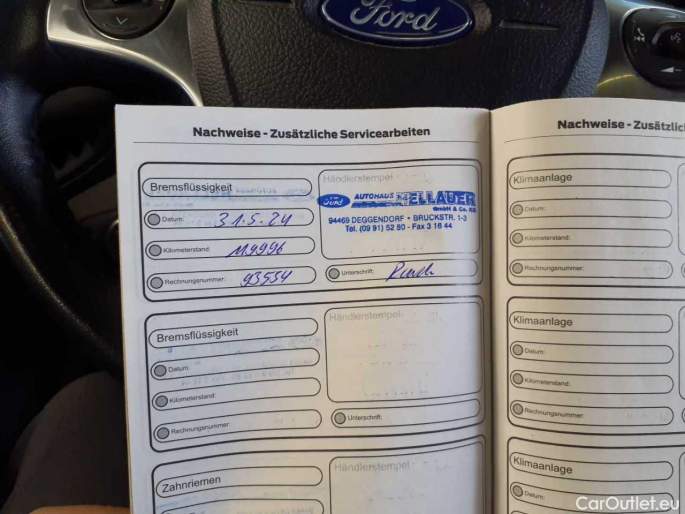 Ford
Nachweise - Zusätzliche Servicearbeiten
Bremsflüssigkeit
Händlerstempel:
Ford AUTOHAUS HELLAUER
GmbH & Co. KG
94469 DEGGENDORF • BRUCKSTR. 1-3
Tel. (09 91) 52 80 - Fax 3 16 44
Datum: 31.5.24
Kilometerstand:
Rechnungsnummer: 93554
Unterschrift:
Bremsflüssigkeit
Händlerstempel:
Datum:
Kilometerstand:
Rechnungsnummer:
Unterschrift:
Zahnriemen
Händlerstempel:
Datum:
Nachweise - Zusätzlic
Klimaanlage
Datum:
Kilometerstand:
Rechnungsnummer:
Klimaanlage
Datum:
Kilometerstand:
Rechnungsnummer:
Klimaanlage
Datum:
Kilometerstand:
CarOutlet.eu